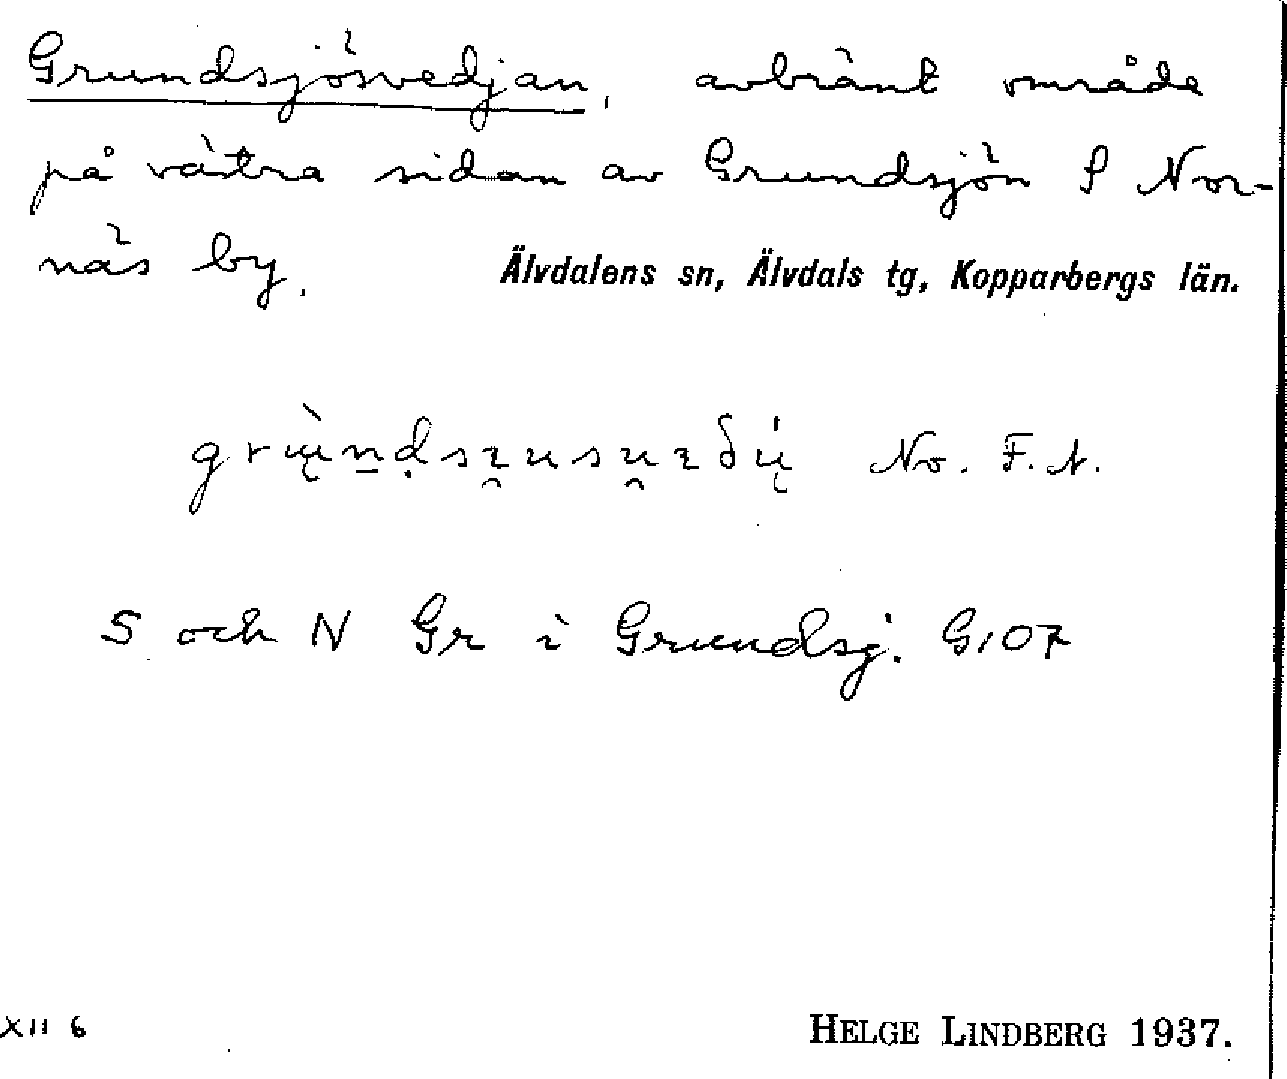 Grundsjösvedjan, avbränt område
på västra sidan av Grundsjön S Nor-
näs by.
Älvdalens sn, Älvdals tg, Kopparbergs län.
No. F.A.
S och N Gr i Grundsj. G107
XII 6
HELGE LINDBERG 1937.